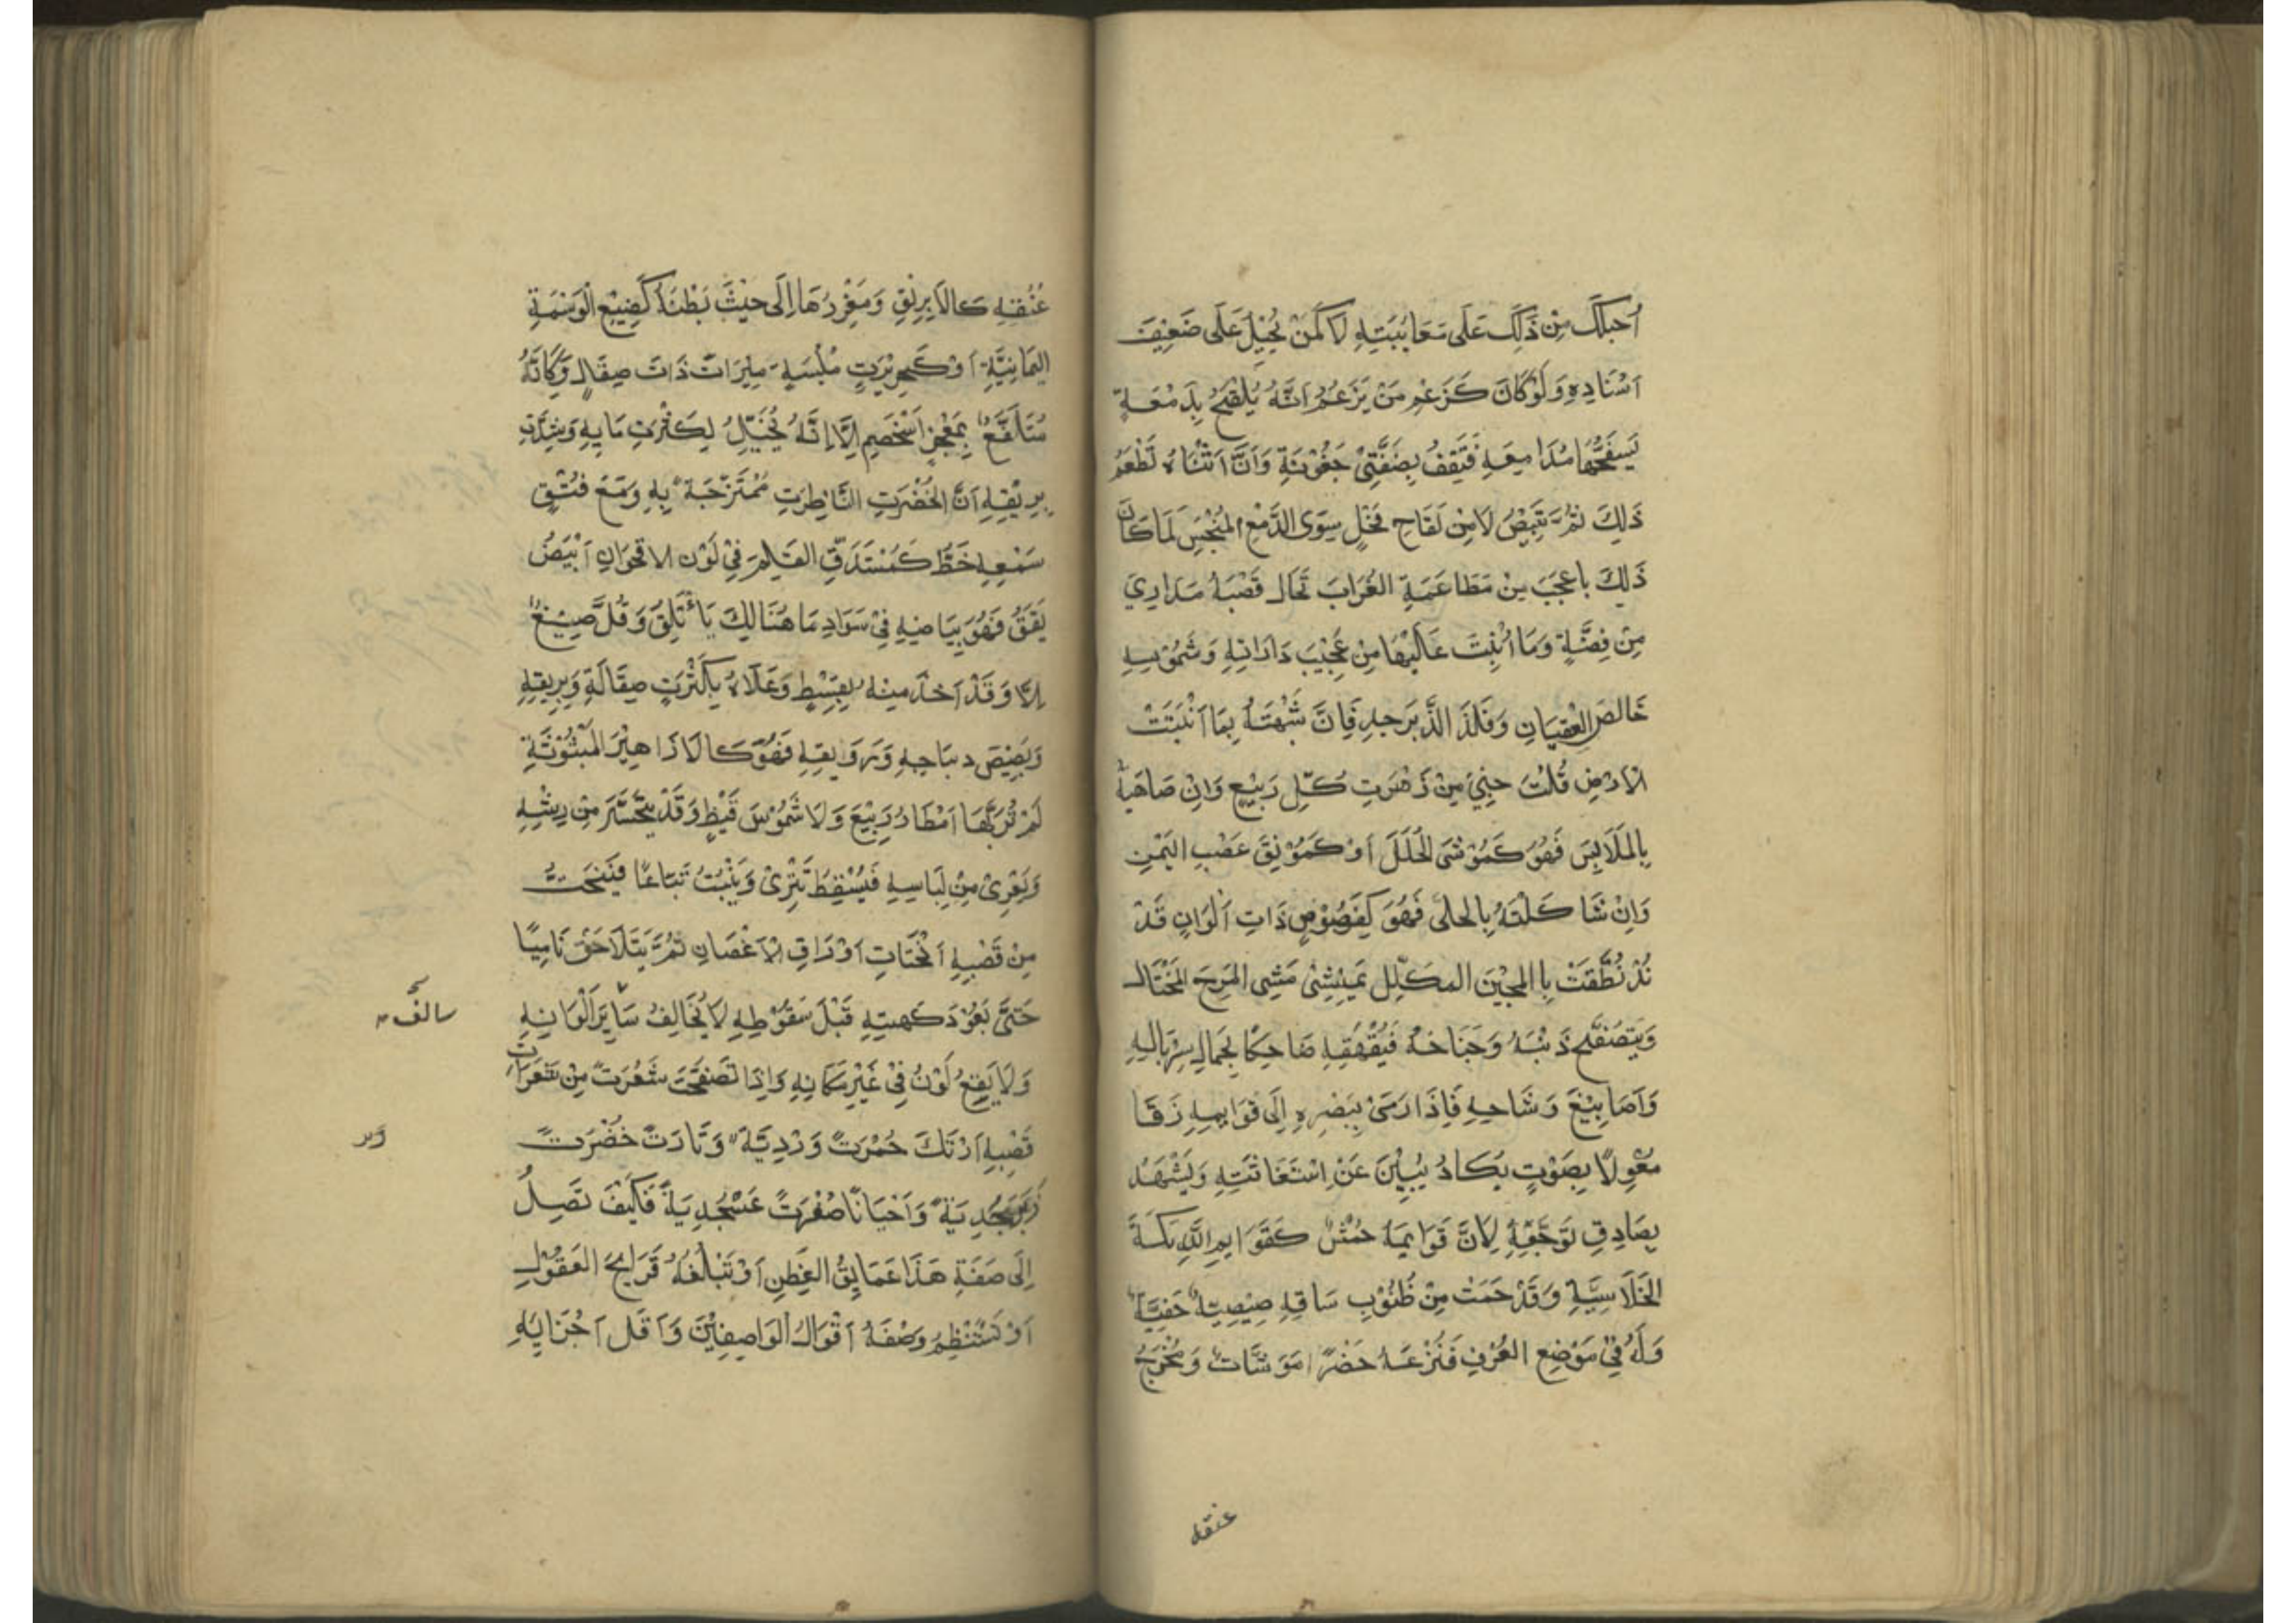 اُحِيلُكَ مِنْ ذَلِكَ عَلَى مَعَايِبَتِهِ لَا كَمَنْ يُحِيْلُ عَلَى ضَعِيْفَ
اَسْنَادِهِ وَلَوْ كَانَ كَزَعْمِ مَنْ يَزْعُمُ اَنَّهُ يُلْقِحُ بِدَمْعَةٍ
يَسْفَحُهَا مُدَامِعَهِ فَتَقِفُ بِضَفَّتِيْ جَفُوْنَةِ وَاَنَّ اَنْثَاهُ تَطْعَمُ
ذَلِكَ ثُمَّ تَبِيْضُ لَا مِنْ لَقَاحِ فَحْلٍ سِوَى الدَّمْعِ المُنْجَبِسِ لَمَا كَانَ
ذَلِكَ باعجَبَ مِنْ مَطَاعَمَةِ الغُرَابَ تَخَالُ قَصْبَهُ مَدَارِيَ
مِنْ فِضَّةٍ وَمَا اُنْبِتَ عَالَيْهَا مِنْ عَجِيْبَ دَارَاتِهِ وَشُمُوْسِهِ
خَالصَ العِقيَانِ وَفَلَذَ الذَّبَرجدِ فَاِنَّ شَبَهْتَهُ بِمَا اَنْبَتَتْ
الاَرضِ قُلتَ جَنِيَ مِنْ زَهْرَتِ كُلِّ رَبِيْعٍ وَاِنْ ضَاهَيْتَهُ
بِالمَلَابِسَ فَهُوَ كَمُوْشَى الْحُلَلَ اَوْ كَمُوْنِقَ عَصْبِ اليَمَنِ
وَاِنْ شَاكَلْتَهُ بِالحلى فَهُوَ كَفَصُوْصٍ ذَاتِ اَلْوَانٍ قَدْ
نُطِّقَتْ بِا للجَيْنَ المكَلَّلِ يَمْشِيْ مَشِى المَرِحَ المُخْتَالِ
وَيَتَصَفَّحُ ذَنْبَهُ وَجَنَاحَهُ فَيُقَهْقِهِ ضَاحِكًا لِجَمَالِ سِرْبَالِهِ
وَاَصَابِيْغَ وِشَاحِهِ فَاِذَا رَمَىْ بِبَصَرِهِ اِلَى قَوَايِمِهِ زَقَا
مُعْوِلًا بِصَوْتٍ يَكَادُ يُبِيْنَ عَنْ اِسْتَغَاثَتِهِ وَيَشْهَدُ
بِصَادِقِ تَوَجُّعِهِ لِاَنَّ قَوَايِمَهُ حُمْشٌ كَقَوَايِمِ الدِّيَكَةَ
الخَلَاسِيَّةِ وَقَدْ نَجَمَتْ مِنْ ظُنْبُوْبِ سَاقِهِ صِيْصِيَةٌ خَفِيَّةٌ
وَلَهُ فِيْ مَوْضِعِ العُرْفِ قَنْزَعَهُ خَضْرًا مَوَشَّاتٌ وَمَخْرَجُ
عنقه
عُنُقِهِ كَالاَبِرِيْقِ وَمَغْرِزُهَا اِلَى حَيْثَ بَطْنَهُ كَصِبْغِ الْوَسْمَةِ
اليَمَانِيَّةِ اَوْ كَحَرِيْرَتٍ مُلْبَسَةٍ مِرَاتٌ ذَاتَ صِقَالٍ وَكَاَنَّهُ
مُتَلَفَّعٌ بِمَعْجِرٍ اَسْحَمِ اِلَّا اِنَّهُ يُخَيَّلُ لِكَثْرَتِ مَايِهِ وَشِدَّتِ
بِرِيْقِهِ اَنَّ الخُضْرَتِ النَّاظِرَتِ مُمْتَزِجَةٌ بِهِ وَمَعَ فَتْقِ
سَمْعِهِ خَطٌّ كَمُسْتَدَقِّ القَلَمِ فِيْ لَوْنِ الاقحوَانِ اَبْيَضُ
يَقَقٌ فَهُوَ بِبَيَاضِهِ فِيْ سَوَادِ مَا هُنَالِكَ يَأْتَلِقُ وَقَلَّ صِبْغٌ
اِلَّا وَقَدْ اَخذَ مِنْهُ بِقِسْطٍ وَعَلَاهُ بِكَثْرَتِ صِقَالَةِ وَبِرِيقِهِ
وَبَصِيْصَ دِيبَاجِهِ وَرَوْنَقِهِ فَهُوَ كَالاَزَاهِيْرَ المَبْثُوْثَةِ
لَمْ تُرَبِّهَا اَمْطَارُ رَبِيْعَ وَلَا شُمُوْسَ قَيْظٍ وَقَدْ يَتَحَسَّرُ مِنْ رِيْشِهِ
وَيَعْرِىْ مِنْ لِبَاسِهِ فَيَسْقُطُ تَتْرَىْ وَيَنْبُتُ تِبَاعًا فَيَنْحَتُّ
مِنْ قَصْبِهِ اَنْحِتَاتِ اَوْرَاقِ الاَغْصَانِ ثُمَّ يَتَلَاحَقُ نَامِيًا
حَتَّى يَعُوْدَ كَهيئَتِهِ قَبْلَ سَقُوْطِهِ لَا يُخَالِفُ سَايِرَ اَلْوَانِهِ
سالف
وَلَا يَقَعُ لَوْنٌ فِيْ غَيْرِ مَكَانِهِ وَاِذَا تَصَفَّحْتَ شَعْرَتً مِنْ شَعَرَاتِ
قَصْبِهِ اَرَتْكَ حُمْرَتً وَرْدِيَّةً وَتَارَتً خُضْرَتً
زَبَرْجَدِيَةً وَاَحْيَانًا صُفْرَتً عَسْجُدِيَةً فَكَيْفَ تَصِلُ
اِلَى صَفَةِ هَذَا عَمَايِقُ الفِطَنِ اَوْ تَبْلُغُهُ قَرَايِحُ العَقُوْلِ
اَوْ تَسْتَنْظِمُ وَصْفَهُ اَقْوَالُ الوَاصِفِيْنَ وَاَقَل اَجْزَايِهِ